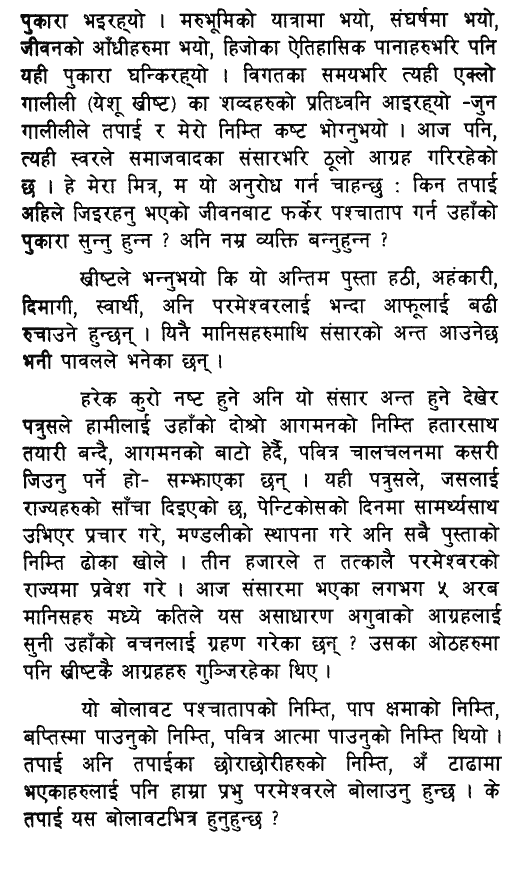 पुकारा भइरह्यो । मरुभूमिको यात्रामा भयो, संघर्षमा भयो,
जीवनको आँधीहरुमा भयो, हिजोका ऐतिहासिक पानाहरुभरि पनि
यही पुकारा घन्किरह्यो । विगतका समयभरि त्यही एक्लो
गालीली (येशू ख्रीष्ट) का शब्दहरुको प्रतिध्वनि आइरह्यो -जुन
गालीलीले तपाई र मेरो निम्ति कष्ट भोग्नुभयो । आज पनि,
त्यही स्वरले समाजवादका संसारभरि ठूलो आग्रह गरिरहेको
छ । हे मेरा मित्र, म यो अनुरोध गर्न चाहन्छु : किन तपाई
अहिले जिइरहनु भएको जीवनबाट फर्केर पश्चाताप गर्न उहाँको
पुकारा सुन्नु हुन्न ? अनि नम्र व्यक्ति बन्नुहुन्न ?
ख्रीष्टले भन्नुभयो कि यो अन्तिम पुस्ता हठी, अहंकारी,
दिमागी, स्वार्थी, अनि परमेश्वरलाई भन्दा आफूलाई बढी
रुचाउने हुन्छन् । यिनै मानिसहरुमाथि संसारको अन्त आउनेछ
भनी पावलले भनेका छन् ।
हरेक कुरो नष्ट हुने अनि यो संसार अन्त हुने देखेर
पत्रुसले हामीलाई उहाँको दोश्रो आगमनको निम्ति हतारसाथ
तयारी बन्दै, आगमनको बाटो हेर्दै, पवित्र चालचलनमा कसरी
जिउनु पर्ने हो- सम्झाएका छन् । यही पत्रुसले, जसलाई
राज्यहरुको साँचा दिइएको छ, पेन्टिकोसको दिनमा सामर्थ्यसाथ
उभिएर प्रचार गरे, मण्डलीको स्थापना गरे अनि सबै पुस्ताको
निम्ति ढोका खोले । तीन हजारले त तत्कालै परमेश्वरको
राज्यमा प्रवेश गरे । आज संसारमा भएका लगभग ५ अरब
मानिसहरु मध्ये कतिले यस असाधारण अगुवाको आग्रहलाई
सुनी उहाँको वचनलाई ग्रहण गरेका छन् ? उसका ओठहरुमा
पनि ख्रीष्टकै आग्रहहरु गुञ्जिरहेका थिए ।
यो बोलावट पश्चातापको निम्ति, पाप क्षमाको निम्ति,
बप्तिस्मा पाउनुको निम्ति, पवित्र आत्मा पाउनुको निम्ति थियो ।
तपाई अनि तपाईका छोराछोरीहरुको निम्ति, अँ टाढामा
भएकाहरुलाई पनि हाम्रा प्रभु परमेश्वरले बोलाउनु हुन्छ । के
तपाई यस बोलावटभित्र हुनुहुन्छ ?